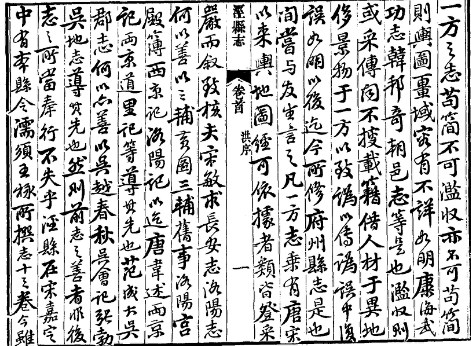 一方之志苟簡不可濫収亦不可苟簡
則輿圖畺域容有不詳如明康海武
功志韓邦奇朝邑志等是也濫収則
或采傳聞不搜載籍借人材于異地
侈景物于一方以致譌以傳譌誤中復
誤如明以後迄今所修府州縣志是也
間嘗与友生言之凡一方志乘有唐宋
以來輿地圖經可依據者類皆登采
涇縣志
卷首
洪序
一
嚴而叙致核夫宋敏求長安志洛陽志
何以善以三輔黃圖三輔舊事洛陽宮
殿簿西京記洛陽記以迄唐韋述兩京
記兩京道里記等導其先也范成大吳
郡志何以亦善以吳越春秋吳會記
吳地志導其先也然則前志之善者非後
志之所當奉行不失乎涇縣在宋嘉定
中有本縣令濡須王栐所撰志十三卷今雖